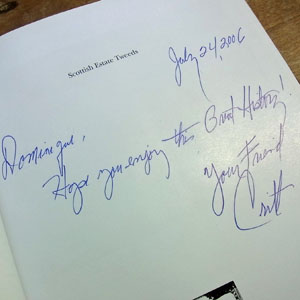 Scottish Estate Tweeds
July 24, 2006
Dominique,
Hope you enjoy this Great History!
Your Friend